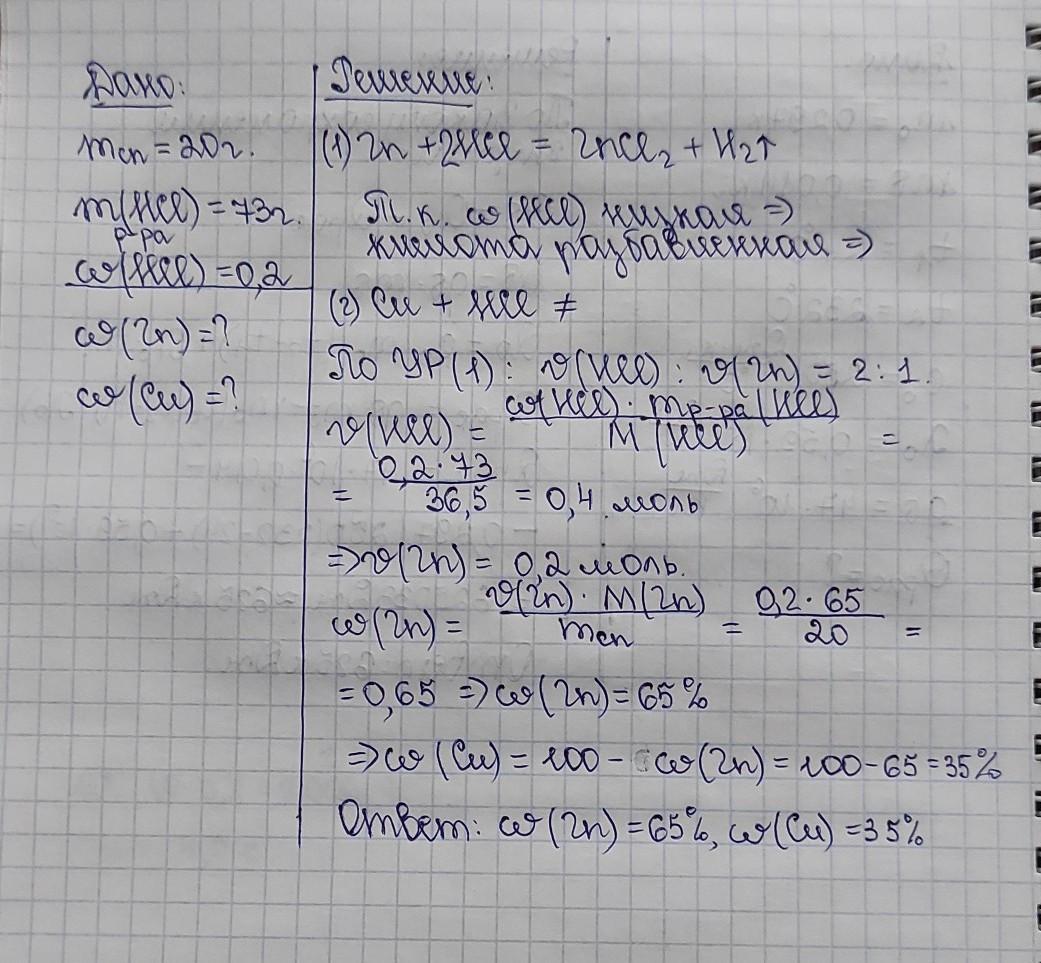 Дано:
mсп = 20г.
m(HCl) = 73г.
р-ра
ω(HCl) = 0,2
ω(Zn) = ?
ω(Cu) = ?
Решение:
(1) Zn + 2HCl = ZnCl₂ + H₂↑
Т.к. ω(HCl) низкая ⇒
кислота разбавленная ⇒
(2) Cu + HCl ≠
По УР(1): ν(HCl) : ν(Zn) = 2 : 1.
ω(HCl) · mр-ра(HCl)
ν(HCl) = M(HCl) =
0,2 · 73
= 36,5 = 0,4 моль
⇒ ν(Zn) = 0,2 моль.
ν(Zn) · M(Zn) 0,2 · 65
ω(Zn) = mсп = 20 =
= 0,65 ⇒ ω(Zn) = 65%
⇒ ω(Cu) = 100 - ω(Zn) = 100 - 65 = 35%
Ответ: ω(Zn) = 65%, ω(Cu) = 35%